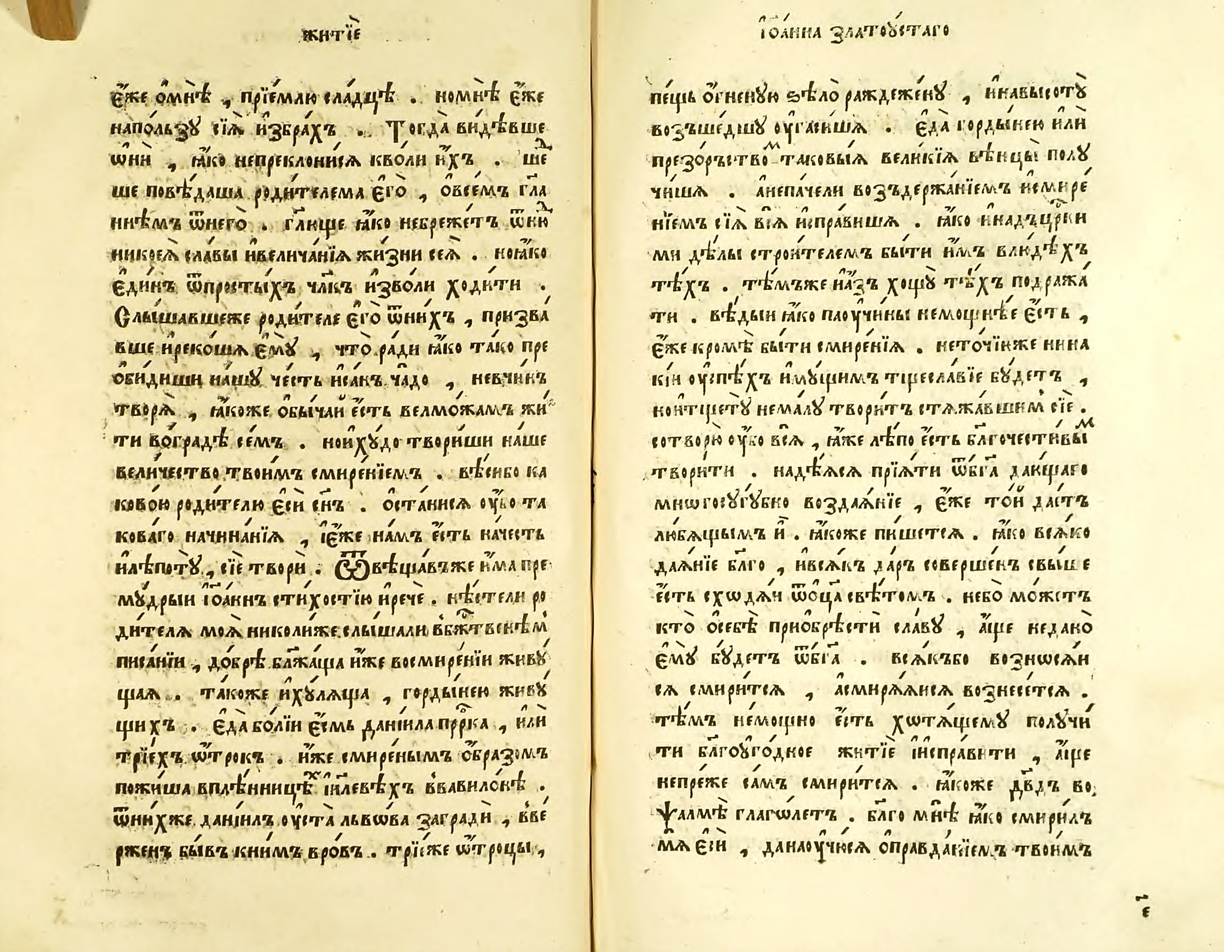 житїе
є҆́же ѡ҆мнѣ̀ , прїе́млю сла́дцѣ . комнѣ̀ є҆́же
напо́льзꙋ сїѧ̀ и҆збра́хъ . Тогда̀ ви́дѣвше
ѡ҆нѝ , ꙗ҆́ко непреклони́сѧ кво́ли и҆́хъ . ше́д
ше повѣ́даша роди́телема є҆гѡ̀ , ѡ҆все́мъ гл҃а
ннѣмъ ѿнегѡ̀ . гл҃юще ꙗ҆́ко небреже́тъ ѿни́д
никоеѧ̀ сла́вы и҆велича́нїѧ жи́зни сеѧ̀ . ноꙗ҆́ко
є҆ди́нъ ѿпросты́хъ чл҃къ и҆зво́ли ходи́ти .
Слы́шавшеже роди́теле є҆гѡ̀ ѿни́хъ , призва́
вше и҆реко́шѧ є҆мꙋ̀ , что̀ ра́ди ꙗ҆́ко та́ко пре
ѡ҆би́диши на́шꙋ че́сть и҆са́нъ ча́до , невчи́нъ
творѧ̀ , ꙗ҆́коже ѡ҆бы́чай є҆́сть велмо́жамъ жи́
ти во́градѣ се́мъ . нои҆хꙋ́до твори́ши на́ше
вели́чество твои́мъ смире́нїемъ . вѣ́сибо ка
ково́ю роди́телю є҆сѝ сн҃ъ . ѡ҆ста́нисѧ ᲂу҆̀бо та
кова́го начина́нїѧ , і҆є҆́же на́мъ є҆́сть начесть
и҆лѣ́потꙋ , сїѐ творѝ . Ѿвѣща́въже и҆́ма пре
мꙋ́дрыи і҆ѡа́ннъ сти́хостїю и҆речѐ . нѣ́стели ро
ди́телѧ моѧ̀ николи́же слы́шали вбж҃твенѣмъ
писа́нїи , до́брѣ бл҃жа́ща и҆́же восмире́нїи живꙋ́
щаѧ . та́коже и҆хꙋ́лѧща , горды́нею живꙋ́
щихъ . є҆да̀ бо́лїи є҆́смь данїи́ла прⷪ҇рка , и҆лѝ
трїе́хъ ѡ҆́трокъ . и҆́же смире́нымъ ѡ҆́бразомъ
пожи́ша вплѣ́нницѣⷯ і҆и҃левѣхъ ввавило́нѣ .
ѿни́хже данїи́лъ ᲂу҆ста̀ львѡ́ва загради̏ , вве́
рженъ бы́въ кни́мъ вро́въ . трїе́же ѡ҆́троцы ,
і҆ѡа́нна златоꙋ́стаго
пе́щь ѻ҆́гненꙋю ѕѣлѡ̀ раждеже́нꙋ , и҆навысотꙋ̀
возъше́дшꙋ ᲂу҆гаси́шѧ . є҆да̀ горды́нею и҆лѝ
презо́рьствоⷨ таковы́ѧ вели́кїѧ вѣнцы̀ полꙋ
чи́шѧ . а҆непа́чели воздержа́нїемъ и҆смире́
нїемъ сїѧ̀ всѧ̀ и҆спра́вишѧ . ꙗ҆́ко и҆надъцр҃ки
ми дѣ́лы строи́телемъ бы́ти и҆̀мъ влю́дѣхъ
тѣ́хъ . тѣ́мъже и҆а҆́зъ хощꙋ̀ тѣ́хъ подража́
ти . вѣ́дыи ꙗ҆́ко паꙋчи́ны немощнѣ́е є҆́сть ,
є҆́же кромѣ̀ бы́ти смире́нїѧ . неточїи́же ника
кі́и ᲂу҆спѣ́хъ и҆мꙋ́щимъ тщесла́вїе бꙋ́детъ ,
нои҆тщетꙋ̀ нема́лꙋ твори́тъ стѧжа́вшимъ сїѐ .
сотворю̀ ᲂу҆́бо всѧ̀ , ꙗ҆́же лѣ́по є҆́сть бл҃гочести́выⷨ
твори́ти . надѣ́ѧсѧ прїѧ́ти ѿбг҃а даю́щаго
многосꙋгꙋ́бно воздаѧ́нїе , є҆́же то́й да́стъ
лю́бѧщымъ и҆̀ . ꙗ҆́коже пи́шетсѧ . ꙗ҆́ко всѧ́ко
даѧ́нїе бл҃го , и҆всѧ́къ да́ръ соверше́нъ свы́ше
є҆́сть сходѧ́и ѿѻ҆ц҃а свѣ́томъ . небо̀ мо́жетъ
кто̀ ѡ҆себѣ̀ приѡбрѣстѝ сла́вꙋ , а҆́ще неданѡ̀
є҆мꙋ̀ бꙋ́детъ ѿбг҃а . всѧ́къбо возносѧ́и
сѧ смири́тсѧ , а҆смирѧ́ѧисѧ вознесе́тсѧ .
тѣ́мъ немо́щно є҆́сть хотѧ́щемꙋ полꙋчи́
ти бл҃гоꙋго́дное житїѐ и҆и҆спра́вити , а҆́ще
непре́же са́мъ смири́тсѧ . ꙗ҆́коже дв҃дъ во
ѱалмѣ̀ глаго́летъ . бл҃го мнѣ̀ ꙗ҆́ко смири́лъ
мѧ є҆сѝ , данаꙋчю́сѧ ѡ҆правда́нїемъ твои́мъ
є҃